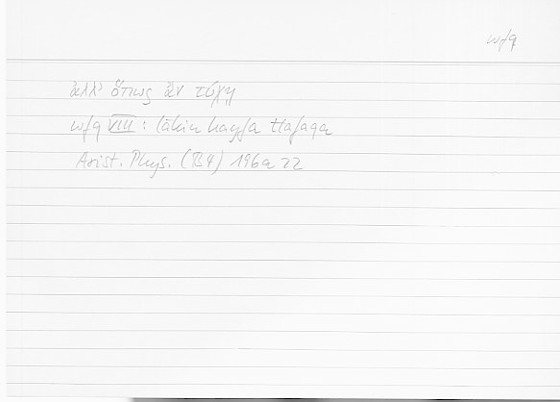 wfq
ἀλλ' ὅπως ἂν τύχῃ
wfq VIII: lākin kayfa ttafaqa
Arist. Phys. (B4) 196a22